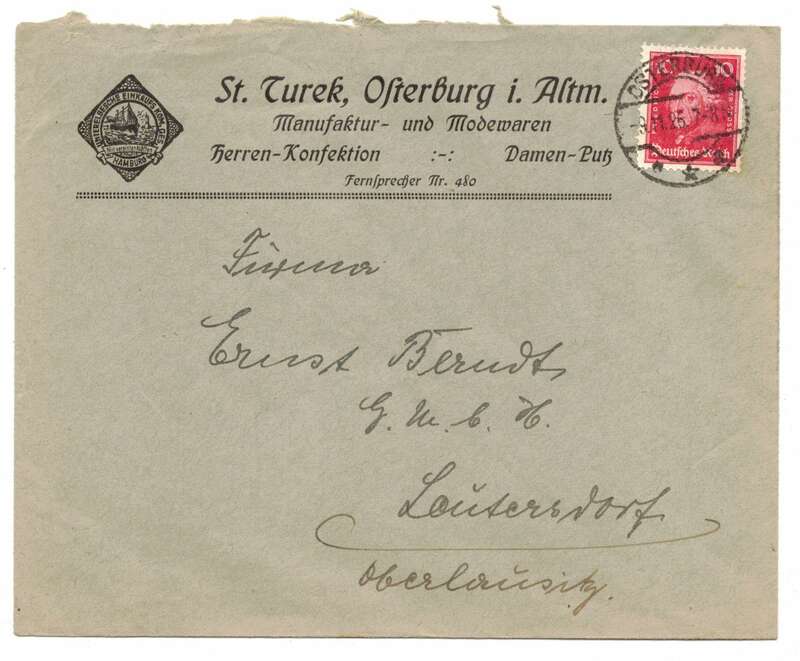 St. Turek, Osterburg i. Altm.
Manufaktur- und Modewaren
Herren-Konfektion :-: Damen-Putz
Fernsprecher Nr. 480
EINKAUFS
HAMBURG
OSTERBURG
Deutsches Reich
Firma
Ernst Berndt
G. m. b. H.
Leutersdorf
Oberlausitz.